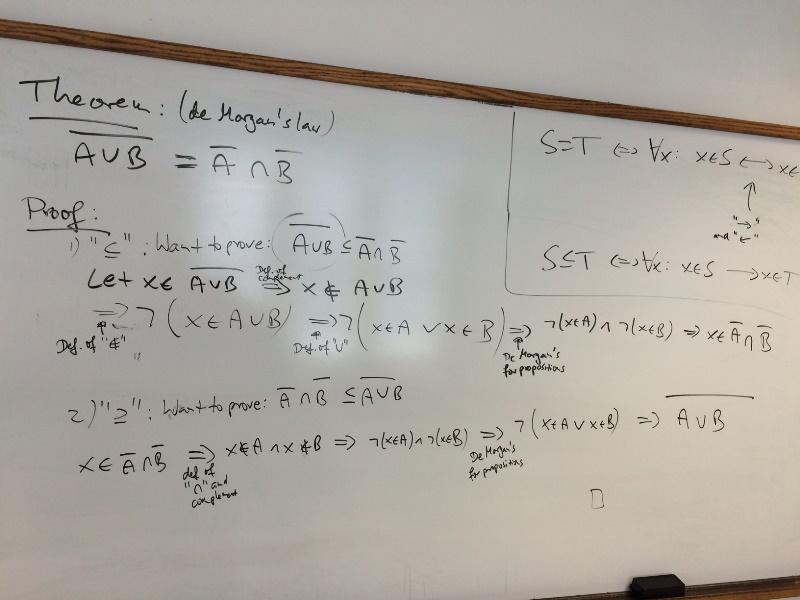 Theorem: (de Morgan's law)
A̅ ∪ B̅ = A̅ ∩ B̅
Proof:
1) "⊆": Want to prove: A̅∪̅B̅ ⊆ A̅ ∩ B̅
Let x ∈ A̅∪̅B̅ ⇒ x ∉ A ∪ B
Def. of complement
⇒ ¬(x ∈ A ∪ B) ⇒ ¬(x ∈ A ∨ x ∈ B) ⇒ ¬(x∈A) ∧ ¬(x∈B) ⇒ x ∈ A̅ ∩ B̅
Def. of "∉"
Def. of "∪"
De Morgan's for propositions
2) "⊇": Want to prove: A̅ ∩ B̅ ⊆ A̅∪̅B̅
x ∈ A̅ ∩ B̅ ⇒ x ∉ A ∧ x ∉ B ⇒ ¬(x∈A) ∧ ¬(x∈B) ⇒ ¬(x∈A ∨ x∈B) ⇒ A̅∪̅B̅
def of "∩" and complement
De Morgan's for propositions
□
S=T ⇔ ∀x: x∈S ⟷ x∈
↑
"→"
and "←"
S⊆T ⇔ ∀x: x∈S → x∈T